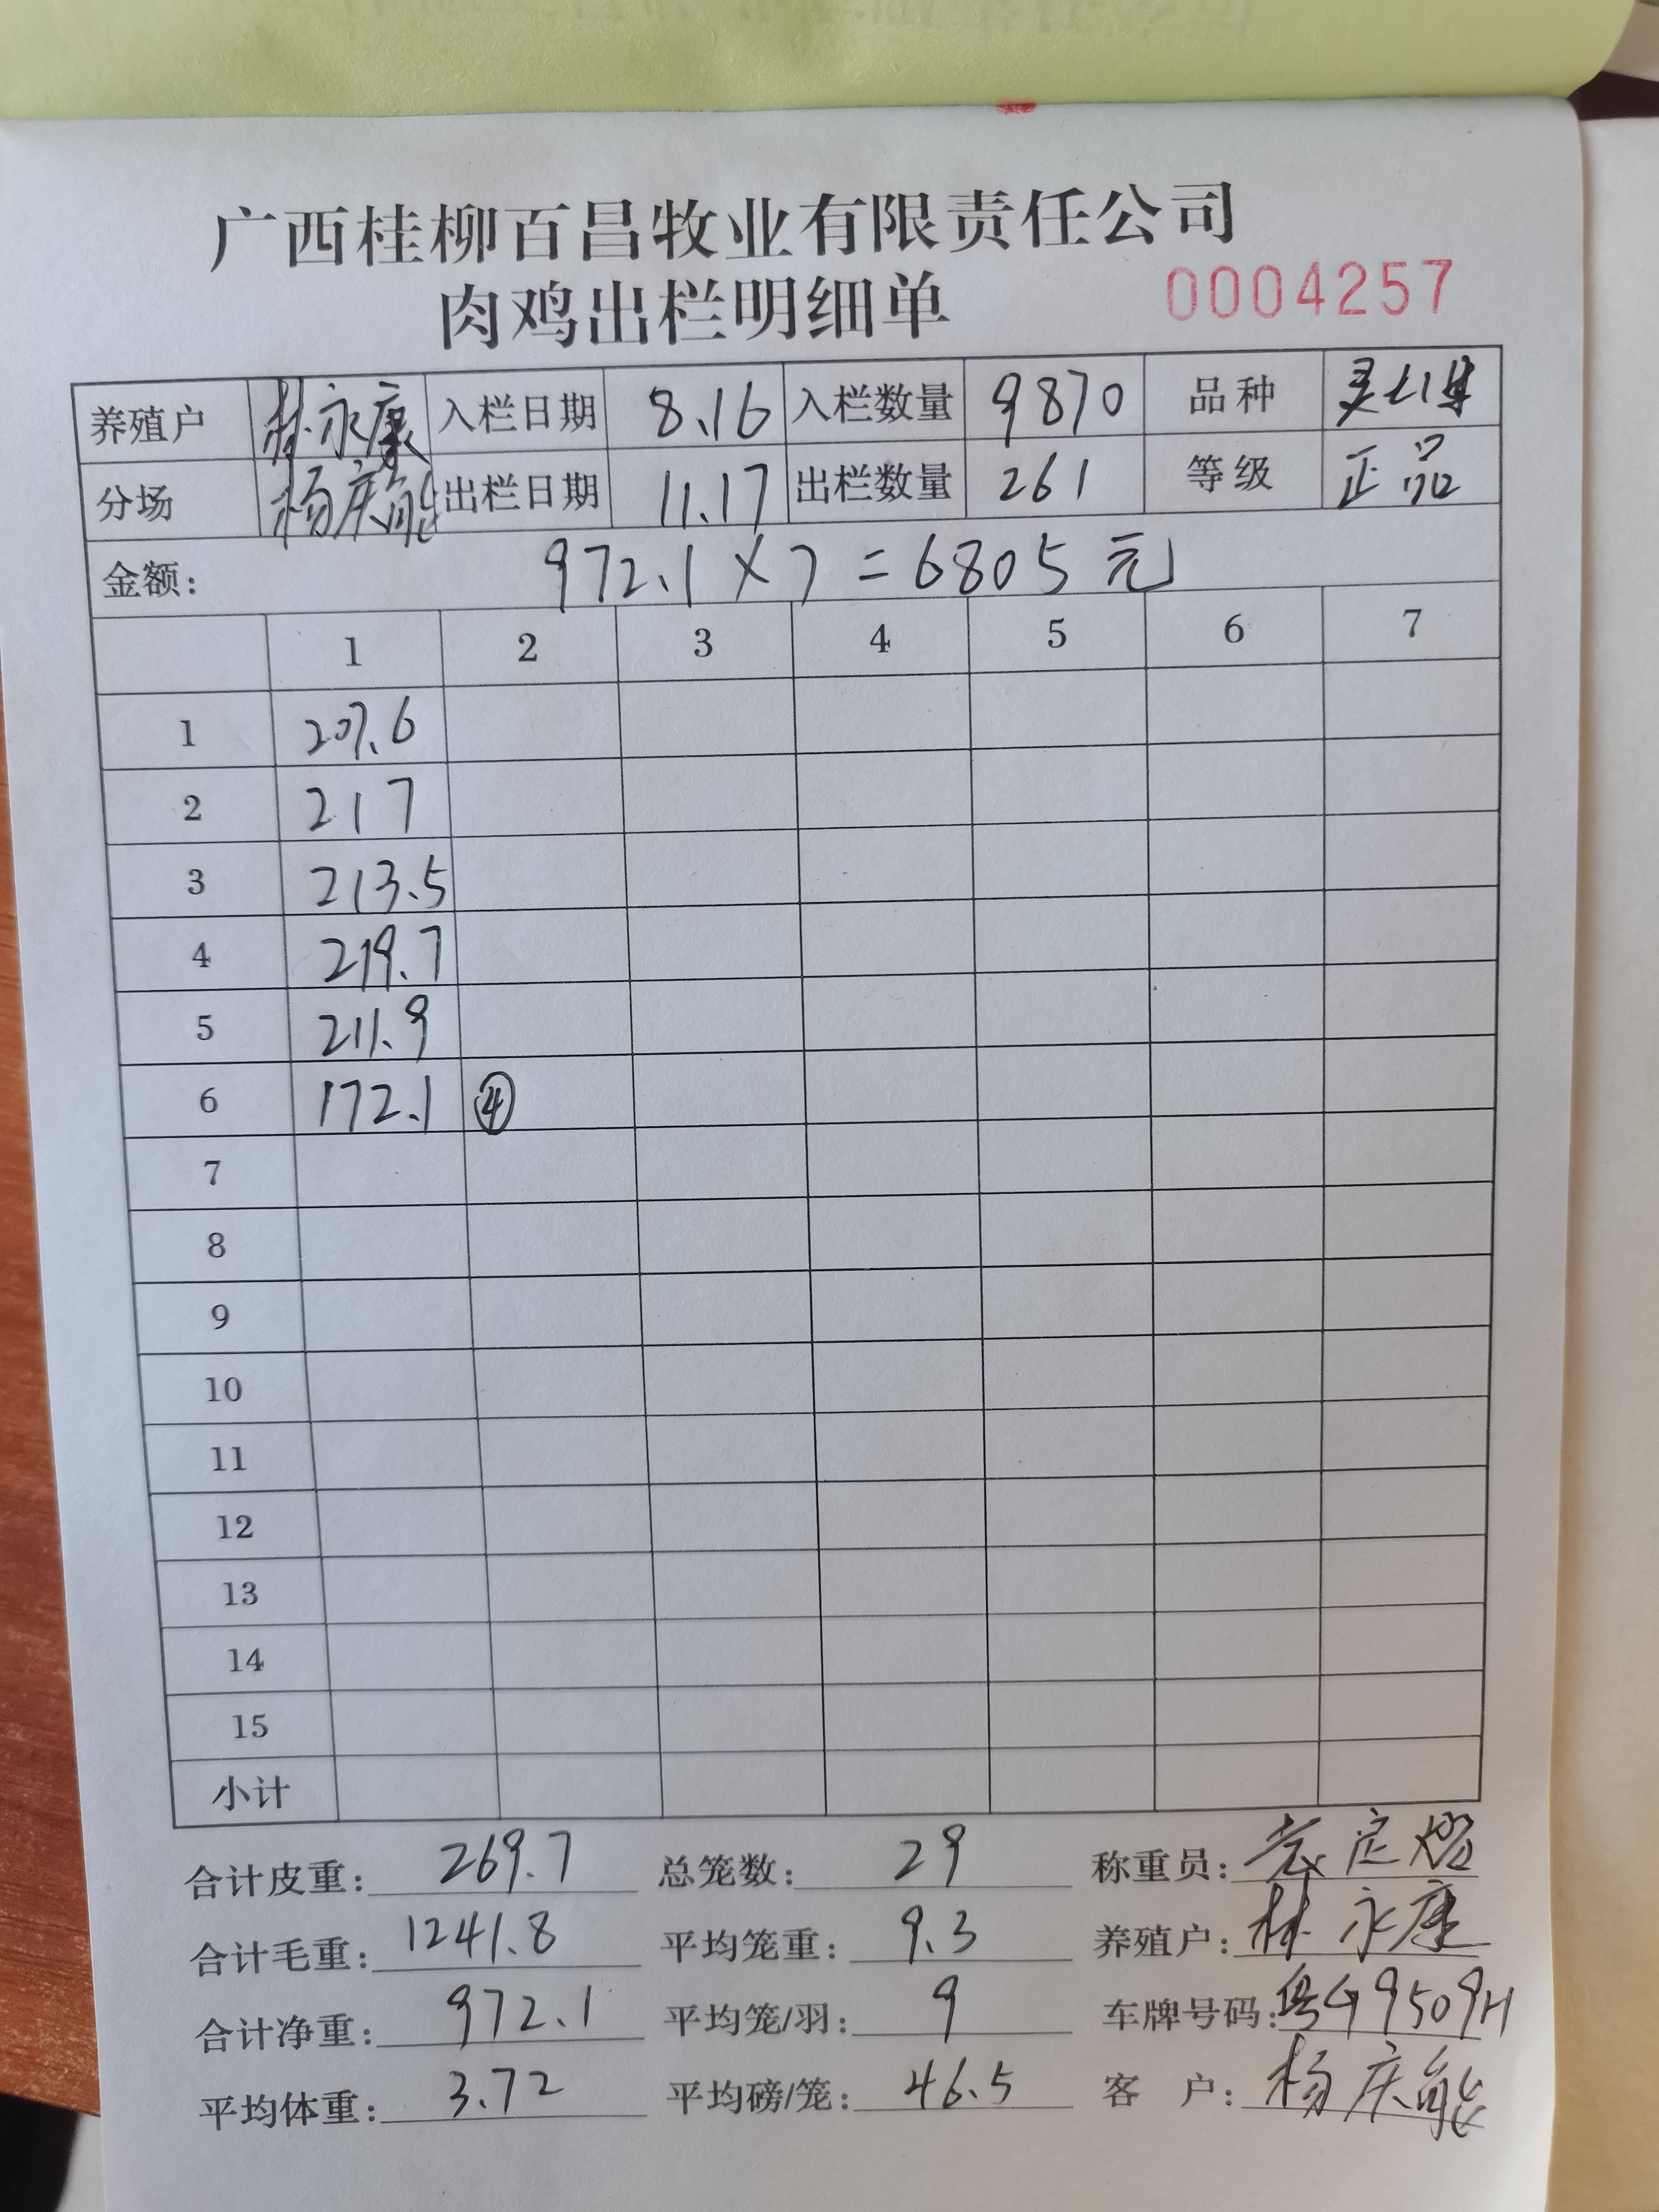 广西桂柳百昌牧业有限责任公司
肉鸡出栏明细单 0004257
养殖户 林永康 入栏日期 8.16 入栏数量 9870 品种
分场 杨庆能 出栏日期 11.17 出栏数量 261 等级 正品
金额: 972.1×7=6805元
1 2 3 4 5 6 7
1 207.6
2 217
3 213.5
4 219.7
5 211.9
6 172.1 ④
7
8
9
10
11
12
13
14
15
小计
合计皮重: 269.7 总笼数: 29 称重员:
合计毛重: 1241.8 平均笼重: 9.3 养殖户: 林永康
合计净重: 972.1 平均笼/羽: 9 车牌号码: 粤G9509H
平均体重: 3.72 平均磅/笼: 46.5 客户: 杨庆能